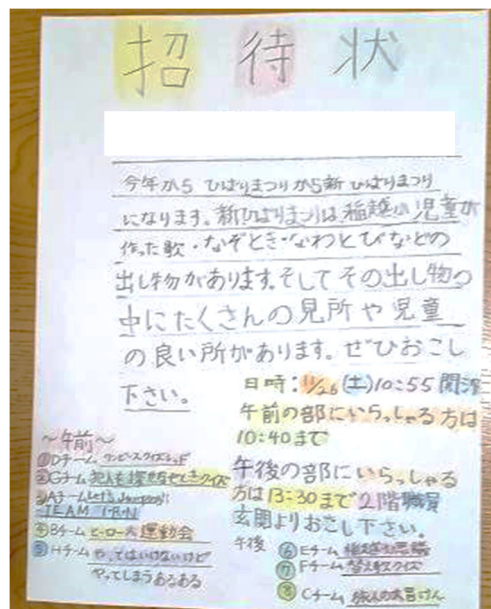 招待状
今年から ひばりまつりから新ひばりまつり
になります。新ひばりまつりは稲越小児童が
作った歌・なぞとき・なわとびなどの
出し物があります。そしてその出し物の
中にたくさんの見所や児童
の良い所があります。ぜひおこし
下さい。
日時：11/26(土)10:55
午前の部にいらっしゃる方は
10:40まで
午後の部にいらっしゃる
方は13:30まで2階職員
玄関よりおこし下さい。
〜午前〜
①Dチーム
②Gチーム 犯人を探せなぞときクイズ
③Aチーム Let's Jumping!!
TEAM I・R・N
④Bチーム ヒーロー大運動会
⑤Hチーム やってはいけないけど
やってしまうあるある
午後
⑥Eチーム 稲越
⑦Fチーム 替え クイズ
⑧Cチーム 旅人の